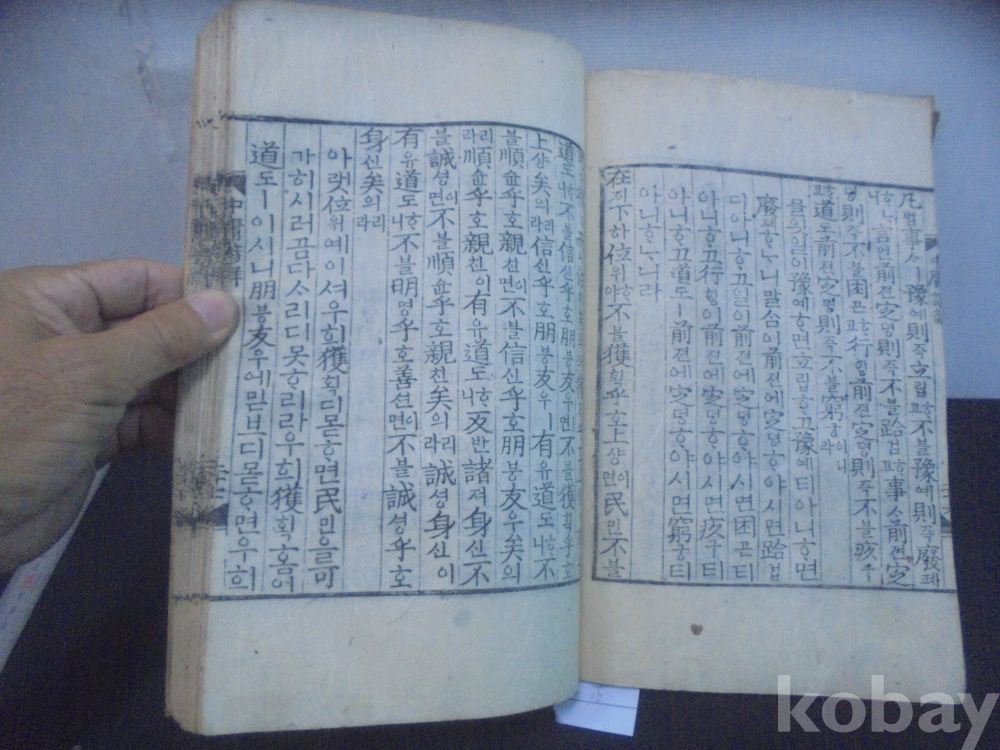 凡범事ᄉᆞㅣ豫예則즉立립ᄒᆞ고不블豫예則즉廢폐
ᄒᆞᄂᆞ니言언前젼定뎡則즉不블跲겁ᄒᆞ고事ᄉᆞ前젼定
뎡則즉不블困곤ᄒᆞ고行ᄒᆡᆼ前젼定뎡則즉不블疚구
ᄒᆞ고道도前젼定뎡則즉不블窮궁이니라
믈읫일이豫예ᄒᆞ면立립ᄒᆞ고豫예티아니ᄒᆞ면
廢폐ᄒᆞᄂᆞ니말ᄉᆞᆷ이前젼에定뎡ᄒᆞ야시면跲겁
디아니ᄒᆞ고일이前젼에定뎡ᄒᆞ야시면困곤티
아니ᄒᆞ고行ᄒᆡᆼ이前젼에定뎡ᄒᆞ야시면疚구티
아니ᄒᆞ고道도ㅣ前젼에定뎡ᄒᆞ야시면窮궁티
아니ᄒᆞᄂᆞ니라
在ᄌᆡ下하位위ᄒᆞ야不블獲획乎호上샹이면民민不블
道도ᄒᆞ니不블信신乎호朋붕友우ㅣ면不블獲획乎호
上샹矣의리라信신乎호朋붕友우ㅣ有유道도ᄒᆞ니不
블順슌乎호親친이면不블信신乎호朋붕友우矣의
리라順슌乎호親친이有유道도ᄒᆞ니反반諸져身신不
블誠셩이면不블順슌乎호親친矣의리라誠셩身신이
有유道도ᄒᆞ니不블明명乎호善션이면不블誠셩乎호
身신矣의리라
아랫位위예이셔우희獲획디몯ᄒᆞ면民민을可
가히시러곰다ᄉᆞ리디못ᄒᆞ리라우희獲획홈이
道도ㅣ이시니朋붕友우에믿브디몯ᄒᆞ면우희
中庸諺解
kobay